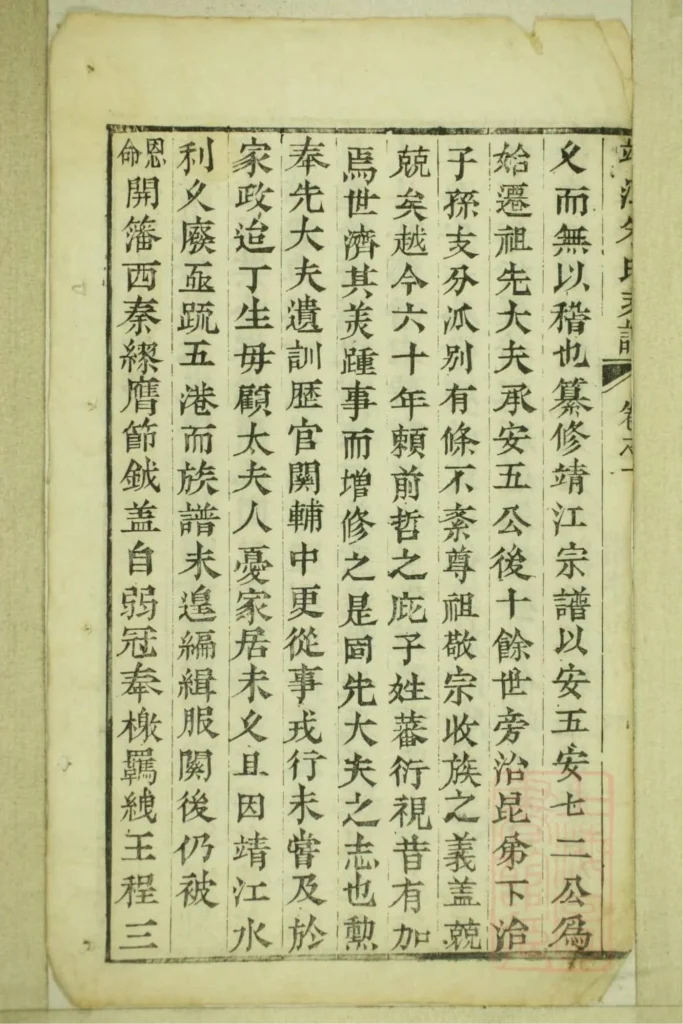 久而無以稽也纂修靖江宗譜以安五安七二公爲
始遷祖先大夫承安五公後十餘世旁治昆弟下治
子孫支分派別有條不紊尊祖敬宗收族之義盖兢
兢矣越今六十年賴前哲之庇子姓蕃衍視昔有加
焉世濟其美踵事而增修之是固先大夫之志也勲
奉先大夫遺訓歴官關輔中更從事戎行未嘗及於
家政迨丁生母顧太夫人憂家居未久且因靖江水
利久廢亟疏五港而族譜未遑編緝服闋後仍被
恩命開藩西秦繆膺節鉞盖自弱冠奉檄羈絏王程三